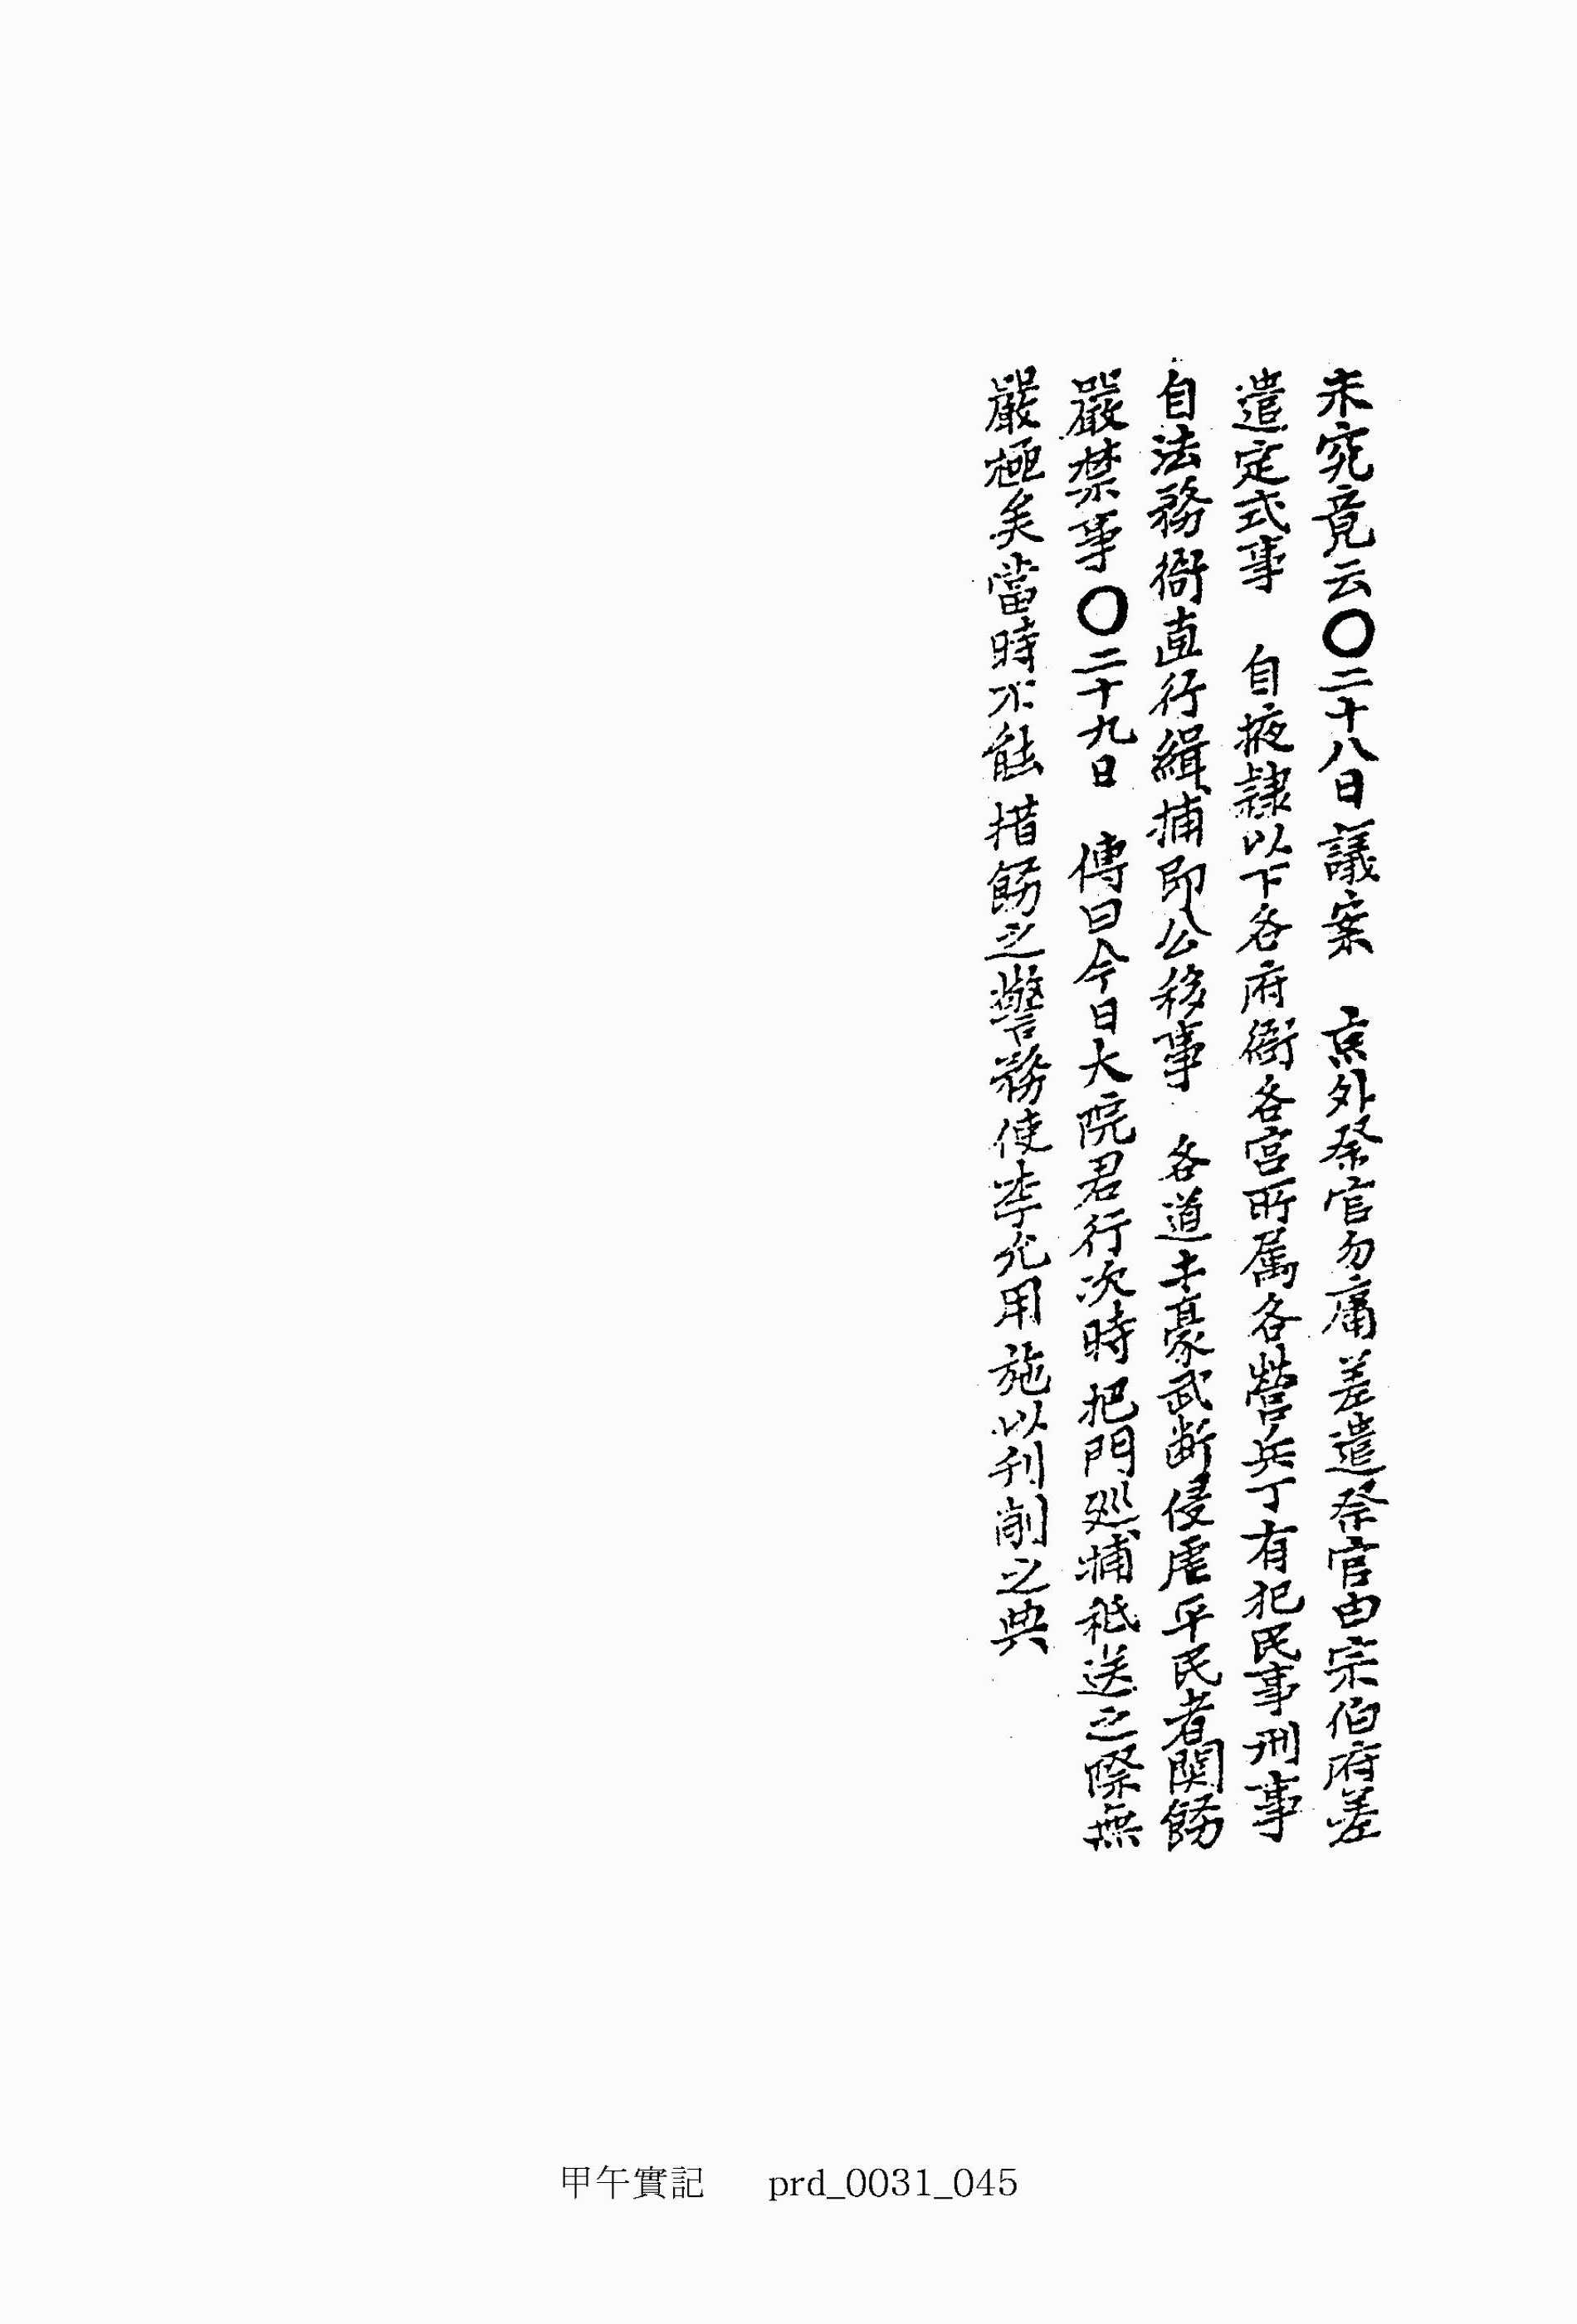 未究竟云〇二十八日議案 京外祭官勿庸差遣祭官由宗伯府差
遣定式事 自掖隷以下各府衙各宮所属各營兵丁有犯民事刑事
自法務衙直行緝捕即公移事 各道土豪武断侵虐平民者関飭
嚴禁事〇二十九日 傳曰今日大院君行次時把門巡捕秪送之際無
嚴極矣當時不能措飭之警務使李允用施以刊削之典
甲午實記 prd_0031_045